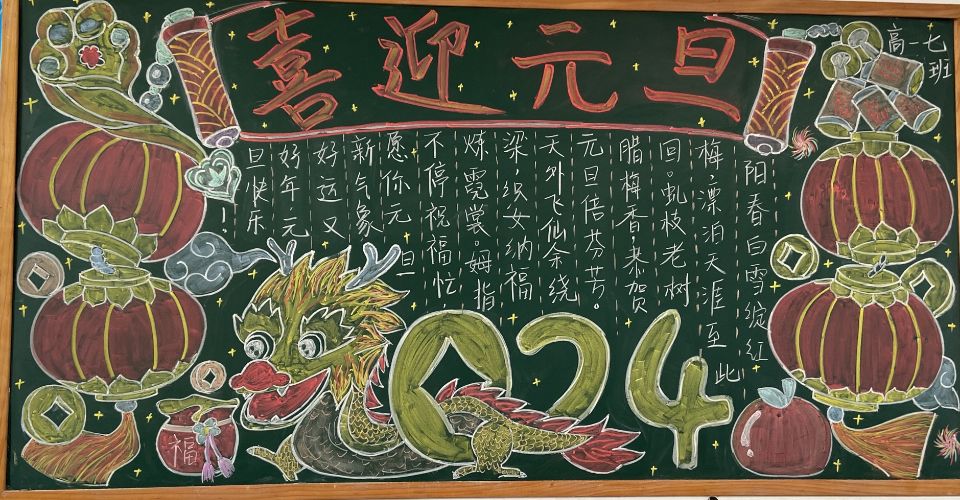 喜迎元旦
高一七
班
阳春白雪绽红
梅，漂泊天涯至此
回。虬枝老树
腊梅香，恭贺
元旦倍芬芳。
天外飞仙余绕
梁，织女纳福
炼霓裳。姆指
不停祝福忙，
愿你元旦
新气象
好运又
好年元
旦快乐
！
024
福